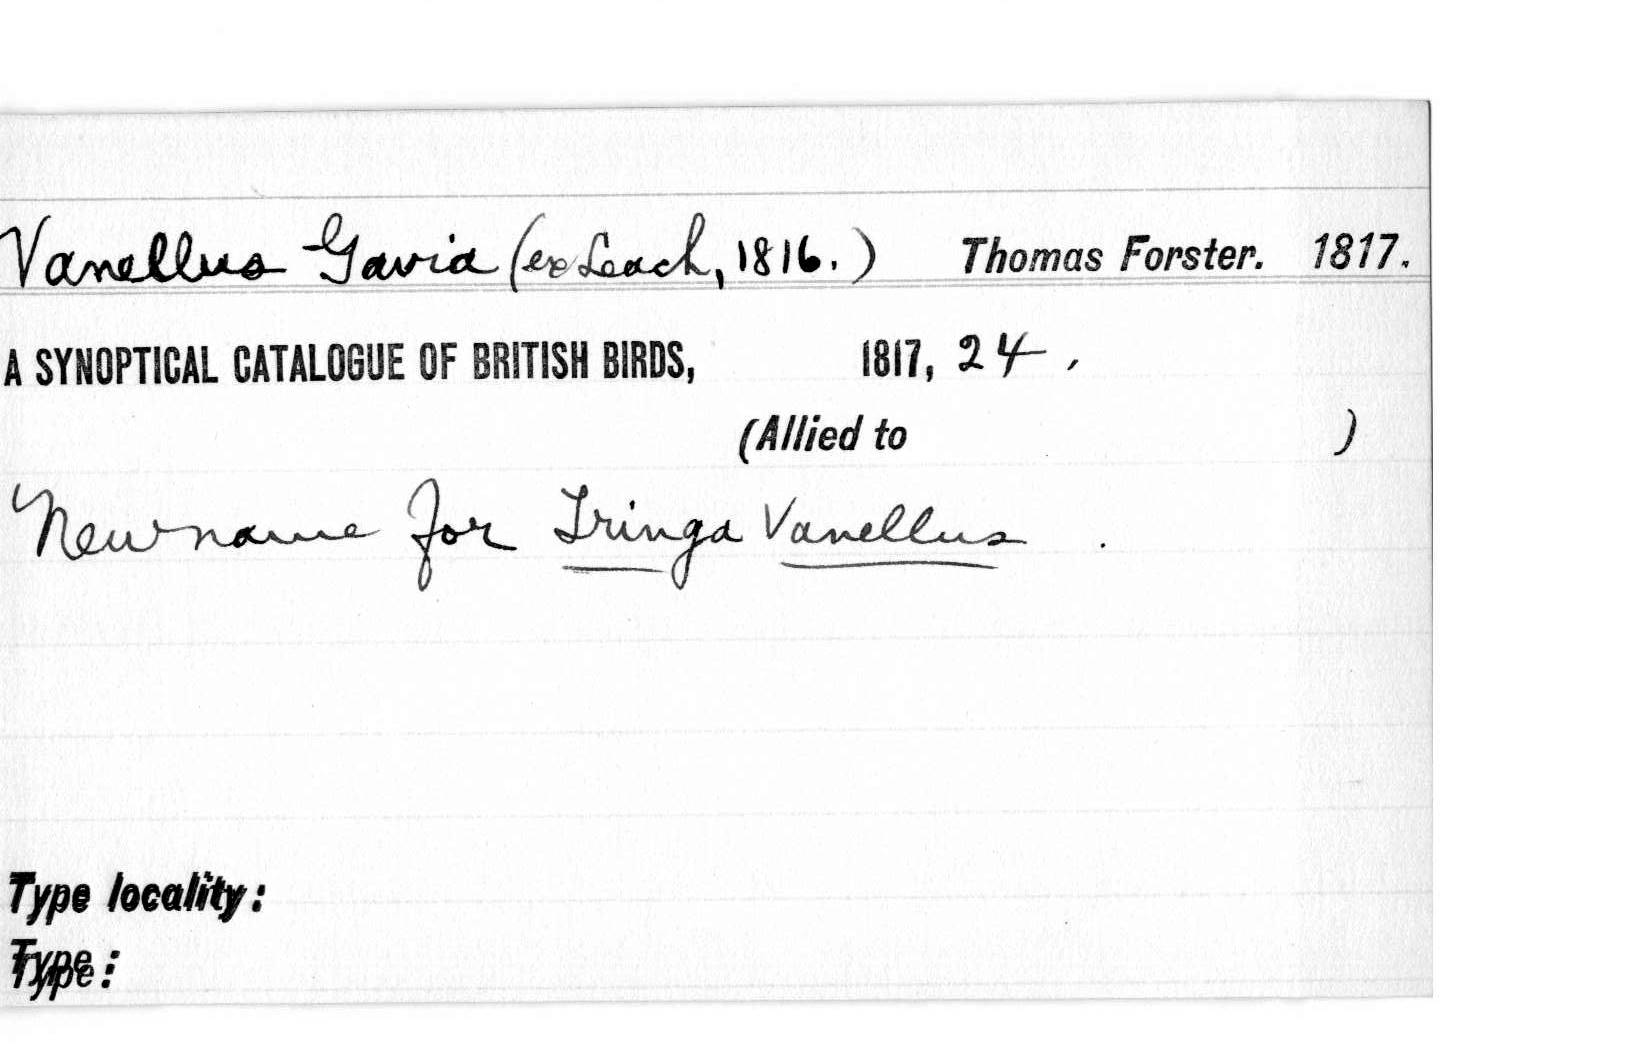 Vanellus Gavia (ex Leach, 1816.) Thomas Forster. 1817.
A SYNOPTICAL CATALOGUE OF BRITISH BIRDS, 1817, 24.
(Allied to )
New name for Tringa Vanellus.
Type locality:
Type: